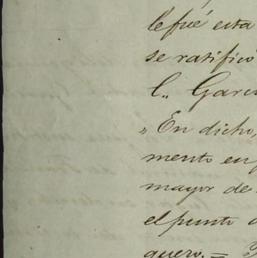 lefué esta
se ratificó
C.. Garc
"En dicho,
mento en
mayor de
el punto
quero.=